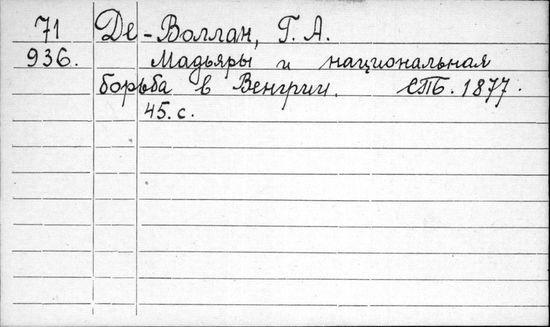 71 Де-Воллан, Г. А.
936. Мадьяры и национальная
борьба в Венгрии. СПБ. 1877.
45. с.